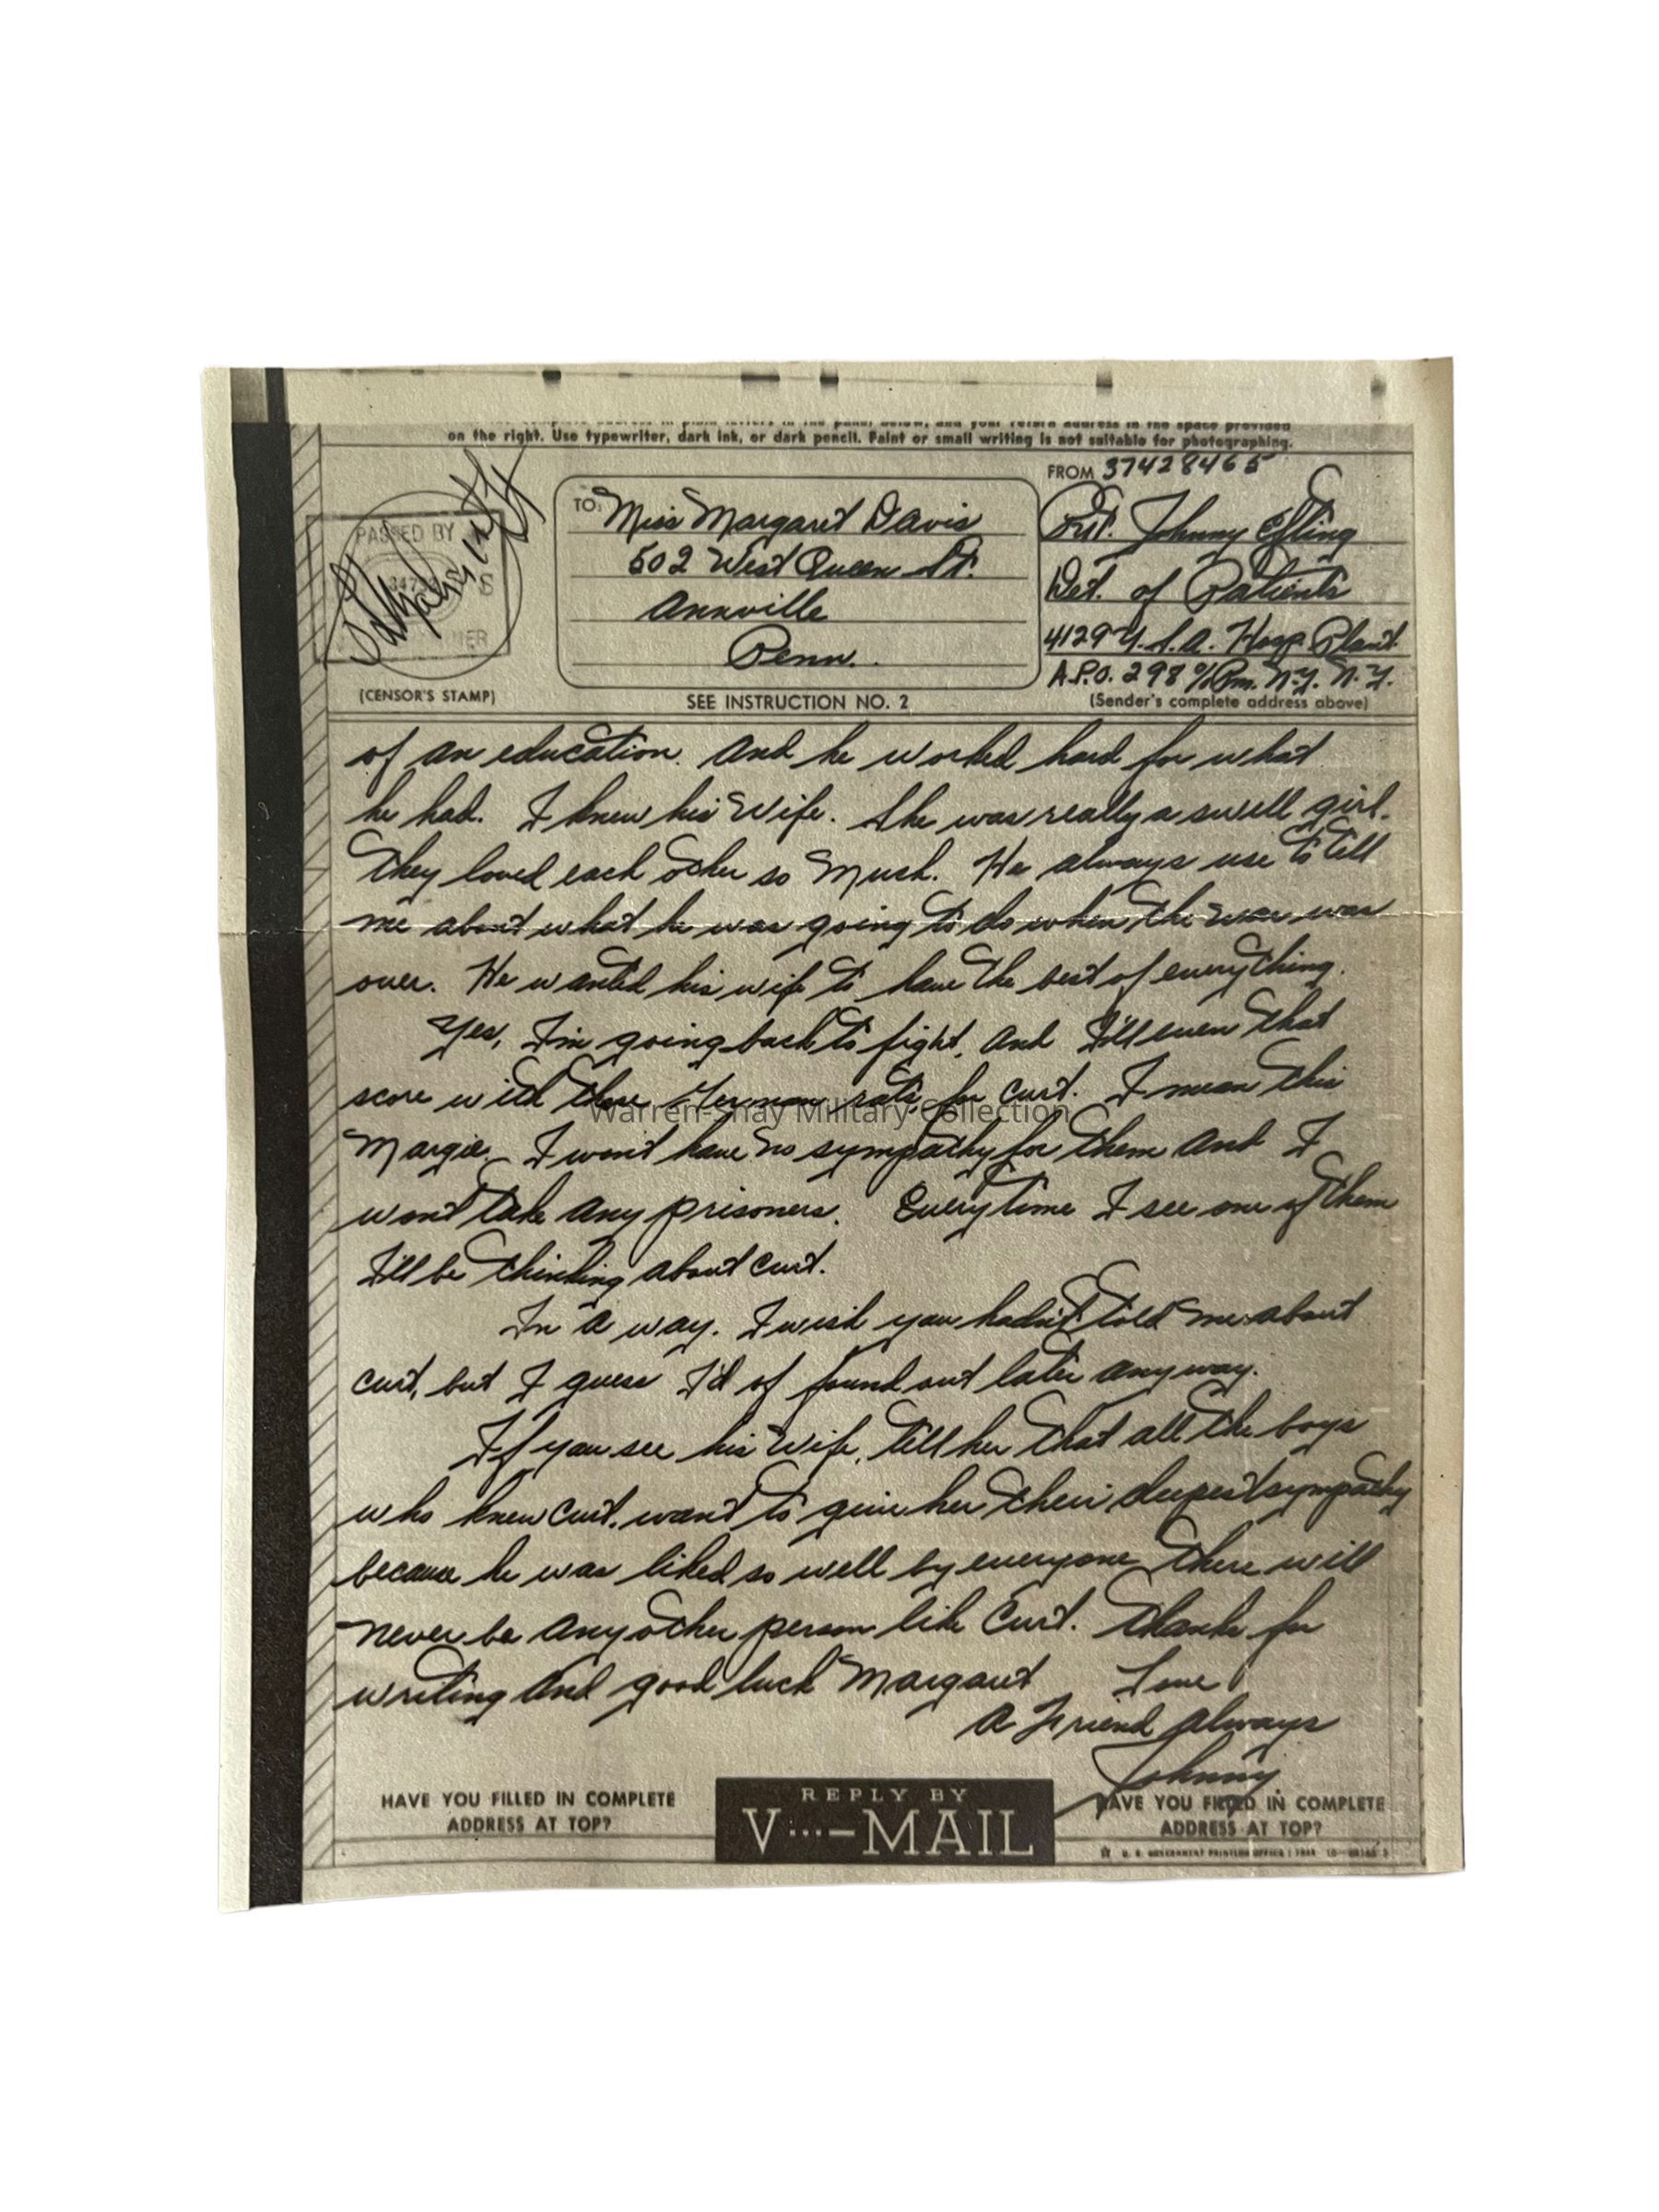 on the right. Use typewriter, dark ink, or dark pencil. Faint or small writing is not suitable for photographing.
PASSED BY
S
(CENSOR'S STAMP)
TO:
Miss Margaret Davis
502 West Queen St.
Annville
Penn.
SEE INSTRUCTION NO. 2
FROM 37428465
Pvt. Johnny Efling
Det. of Patients
4129 U.S.A. Hosp. Plant
A.P.O. 298 % Pm. N.Y. N.Y.
(Sender's complete address above)
of an education. And he worked hard for what
he had. I knew his Wife. She was really a swell girl.
They loved each other so Mush. He always use to tell
me about what he was going to do when the war was
over. He wanted his wife to have the best of everything.
Yes, I'm going back to fight, And I'll even that
score with those German rats, for Curt. I mean this
Margie. I won't have no sympathy for them And I
won't take any prisoners. Everytime I see one of them
I'll be thinking about Curt.
In a way. I wish you hadn't told me about
Curt, but I guess I'd of found out later anyway.
If you see his Wife, tell her that all the boys
who knew Curt, want to give her their deepest sympathy
because he was liked so well by everyone, there will
never be any other person like Curt. Thanks for
writing And good luck Margaret Love
A Friend Always
Johnny
Warren-Shay Military Collection
HAVE YOU FILLED IN COMPLETE
ADDRESS AT TOP?
REPLY BY
V···—MAIL
HAVE YOU FILLED IN COMPLETE
ADDRESS AT TOP?
U. S. GOVERNMENT PRINTING OFFICE